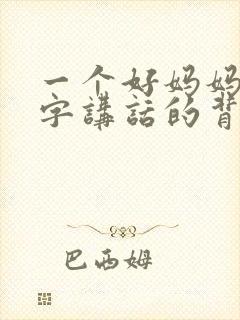 一个好妈妈
字讲話的背
巴西姆